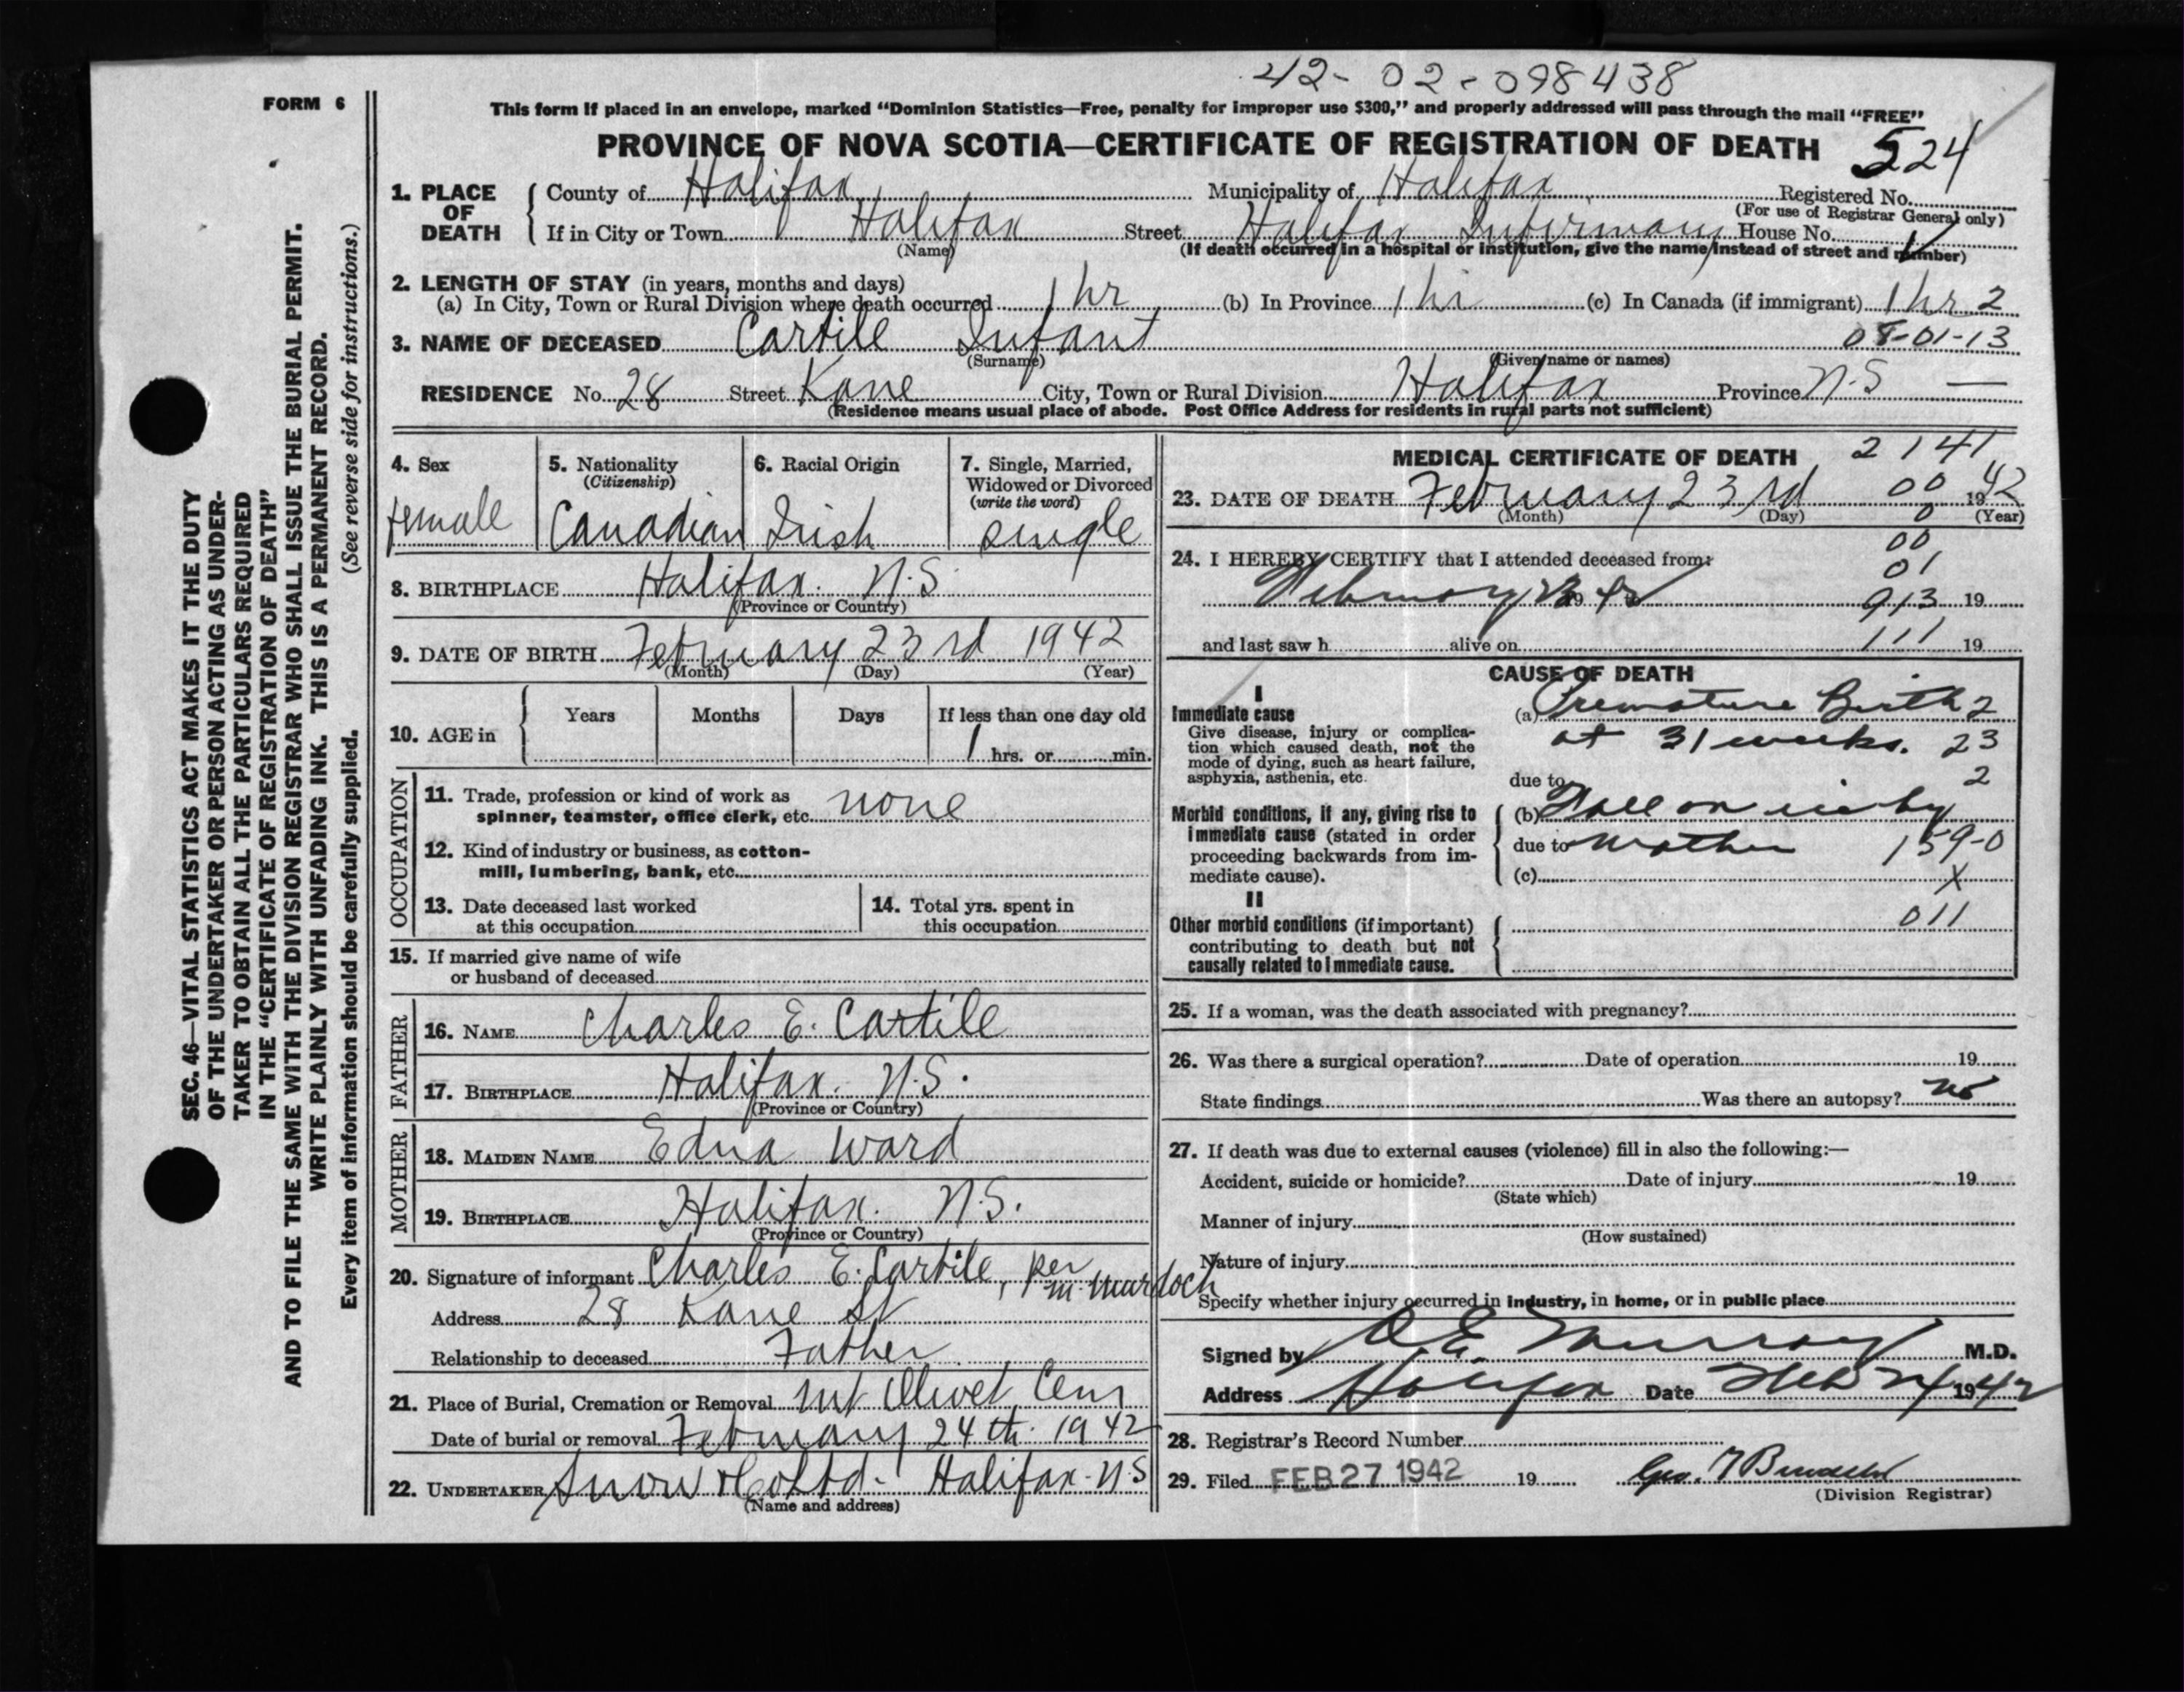 42-02-098438
FORM 6
This form if placed in an envelope, marked “Dominion Statistics—Free, penalty for improper use $300,” and properly addressed will pass through the mail “FREE”
PROVINCE OF NOVA SCOTIA—CERTIFICATE OF REGISTRATION OF DEATH 524
1. PLACE OF DEATH
County of Halifax Municipality of Halifax Registered No.
(For use of Registrar General only)
If in City or Town Halifax Street Halifax Infirmary House No.
(Name) (If death occurred in a hospital or institution, give the name instead of street and number)
2. LENGTH OF STAY (in years, months and days)
(a) In City, Town or Rural Division where death occurred 1 hr (b) In Province 1 hr (c) In Canada (if immigrant) 1 hr 2
3. NAME OF DECEASED Cartile Infant 08-01-13
(Surname) (Given name or names)
RESIDENCE No. 28 Street Kane City, Town or Rural Division Halifax Province N.S —
(Residence means usual place of abode. Post Office Address for residents in rural parts not sufficient)
4. Sex
female
5. Nationality
(Citizenship)
Canadian
6. Racial Origin
Irish
7. Single, Married,
Widowed or Divorced
(write the word)
single
8. BIRTHPLACE Halifax. N.S.
(Province or Country)
9. DATE OF BIRTH February 23rd 1942
(Month) (Day) (Year)
10. AGE in
Years Months Days If less than one day old
1 hrs. or min.
OCCUPATION
11. Trade, profession or kind of work as
spinner, teamster, office clerk, etc. none
12. Kind of industry or business, as cotton-
mill, lumbering, bank, etc.
13. Date deceased last worked
at this occupation
14. Total yrs. spent in
this occupation
15. If married give name of wife
or husband of deceased
FATHER
16. NAME Charles E. Cartile
17. BIRTHPLACE Halifax. N.S.
(Province or Country)
MOTHER
18. MAIDEN NAME Edna Ward
19. BIRTHPLACE Halifax. N.S.
(Province or Country)
20. Signature of informant Charles E. Cartile, per
M. Murdoch
Address 28 Kane St
Relationship to deceased Father
21. Place of Burial, Cremation or Removal Mt Olivet Cem
Date of burial or removal February 24th. 1942
22. UNDERTAKER Snow & Co Ltd. Halifax. N.S
(Name and address)
MEDICAL CERTIFICATE OF DEATH 2141
23. DATE OF DEATH February 23rd 00 1942
(Month) (Day) 0 (Year)
00
24. I HEREBY CERTIFY that I attended deceased from:
01
February 23 1942 913 19
and last saw h alive on 111 19
CAUSE OF DEATH
I
Immediate cause
Give disease, injury or complica-
tion which caused death, not the
mode of dying, such as heart failure,
asphyxia, asthenia, etc.
(a) Premature Birth 2
at 31 weeks. 23
due to 2
Morbid conditions, if any, giving rise to
immediate cause (stated in order
proceeding backwards from im-
mediate cause).
(b) Fall on ice by
due to mother 159-0
(c) X
II
Other morbid conditions (if important)
contributing to death but not
causally related to immediate cause.
011
25. If a woman, was the death associated with pregnancy?
26. Was there a surgical operation? Date of operation 19
State findings Was there an autopsy? no
27. If death was due to external causes (violence) fill in also the following:—
Accident, suicide or homicide? Date of injury 19
(State which)
Manner of injury
(How sustained)
Nature of injury
Specify whether injury occurred in industry, in home, or in public place
Signed by Murray M.D.
Address Halifax Date Feb 24 1942
28. Registrar's Record Number
29. Filed FEB 27 1942 19 Geo.
(Division Registrar)
SEC. 46—VITAL STATISTICS ACT MAKES IT THE DUTY
OF THE UNDERTAKER OR PERSON ACTING AS UNDER-
TAKER TO OBTAIN ALL THE PARTICULARS REQUIRED
IN THE “CERTIFICATE OF REGISTRATION OF DEATH”
AND TO FILE THE SAME WITH THE DIVISION REGISTRAR WHO SHALL ISSUE THE BURIAL PERMIT.
WRITE PLAINLY WITH UNFADING INK. THIS IS A PERMANENT RECORD.
Every item of information should be carefully supplied. (See reverse side for instructions.)